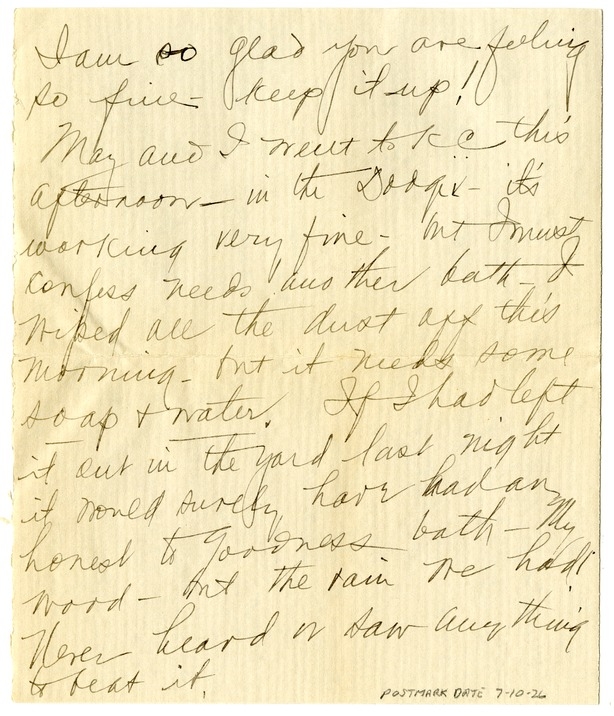 I am so glad you are feeling
so fine - keep it up!
May and I went to K C this
afternoon - in the Dodgie - it's
working very fine - but I must
confess needs another bath - I
wiped all the dust off this
morning - but it needs some
soap + water. If I had left
it out in the yard last night
it would surely have had an
honest to goodness bath - My
word - but the rain we had!
Never heard or saw anything
to beat it.
POSTMARK DATE 7-10-26